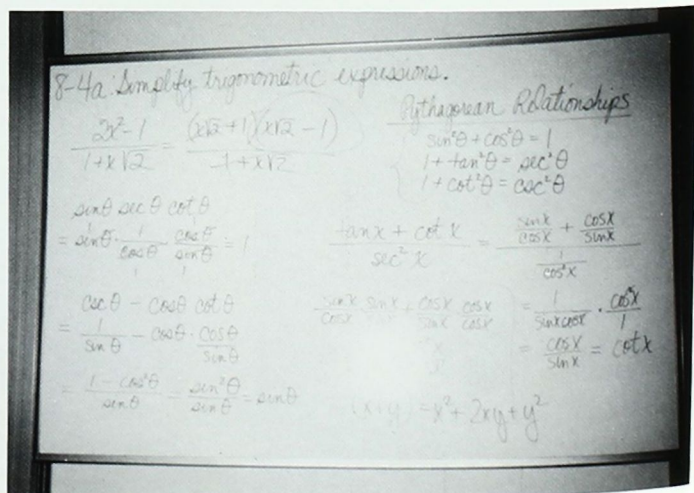 8-4a: Simplify trigonometric expressions.
2x²-1 / 1+x√2 = (x√2+1)(x√2-1) / 1+x√2
Pythagorean Relationships
sin²θ+cos²θ=1
1+tan²θ=sec²θ
1+cot²θ=csc²θ
sinθ sec θ cot θ
= sinθ · 1/cosθ · cosθ/sinθ = 1
csc θ - cosθ cot θ
= 1/sin θ - cosθ · cosθ/sinθ
= 1-cos²θ/sinθ = sin²θ/sinθ = sinθ
tan x + cot x / sec² x = sinx/cosx + cosx/sinx / 1/cos²x
sinx/cosx sinx/ + cosx/sinx cosx/cosx
= 1/sinxcosx · cos²x/1
= cosx/sinx = cotx
(x+y) = x²+2xy+y²